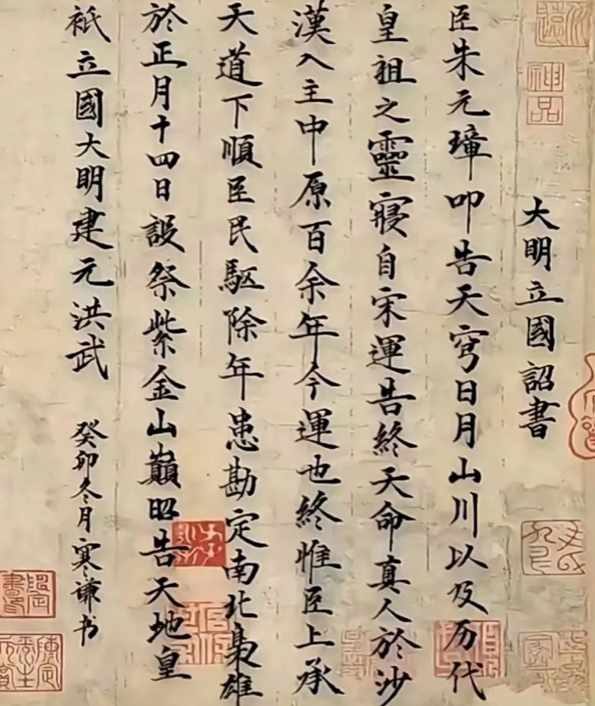 神品
大明立國詔書
臣朱元璋叩告天穹日月山川以及历代
皇祖之靈寢自宋運告終天命真人於沙
漢入主中原百余年今運也終惟臣上承
天道下順臣民駆除年患勘定南北梟雄
於正月十四日設祭紫金山巔昭告天地皇
祇立國大明建元洪武
癸卯冬月寒謙书